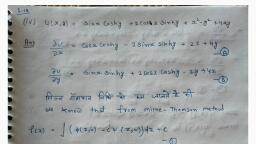 (iv) U(x,y) = sinx coshy + 2cosx sinhy + x² - y² + 4xy
Ans ∂u/∂x = cosx coshy - 2sinx sinhy + 2x + 4y
∂u/∂y = sinx sinhy + 2cosx coshy - 2y + 4x
मिल्न थॉमसन विधि से हम जानते हैं की
we know that from milne-Thomson method
f(z) = ∫ (φ₁(z,0) - iφ₂(z,0)) dz + c